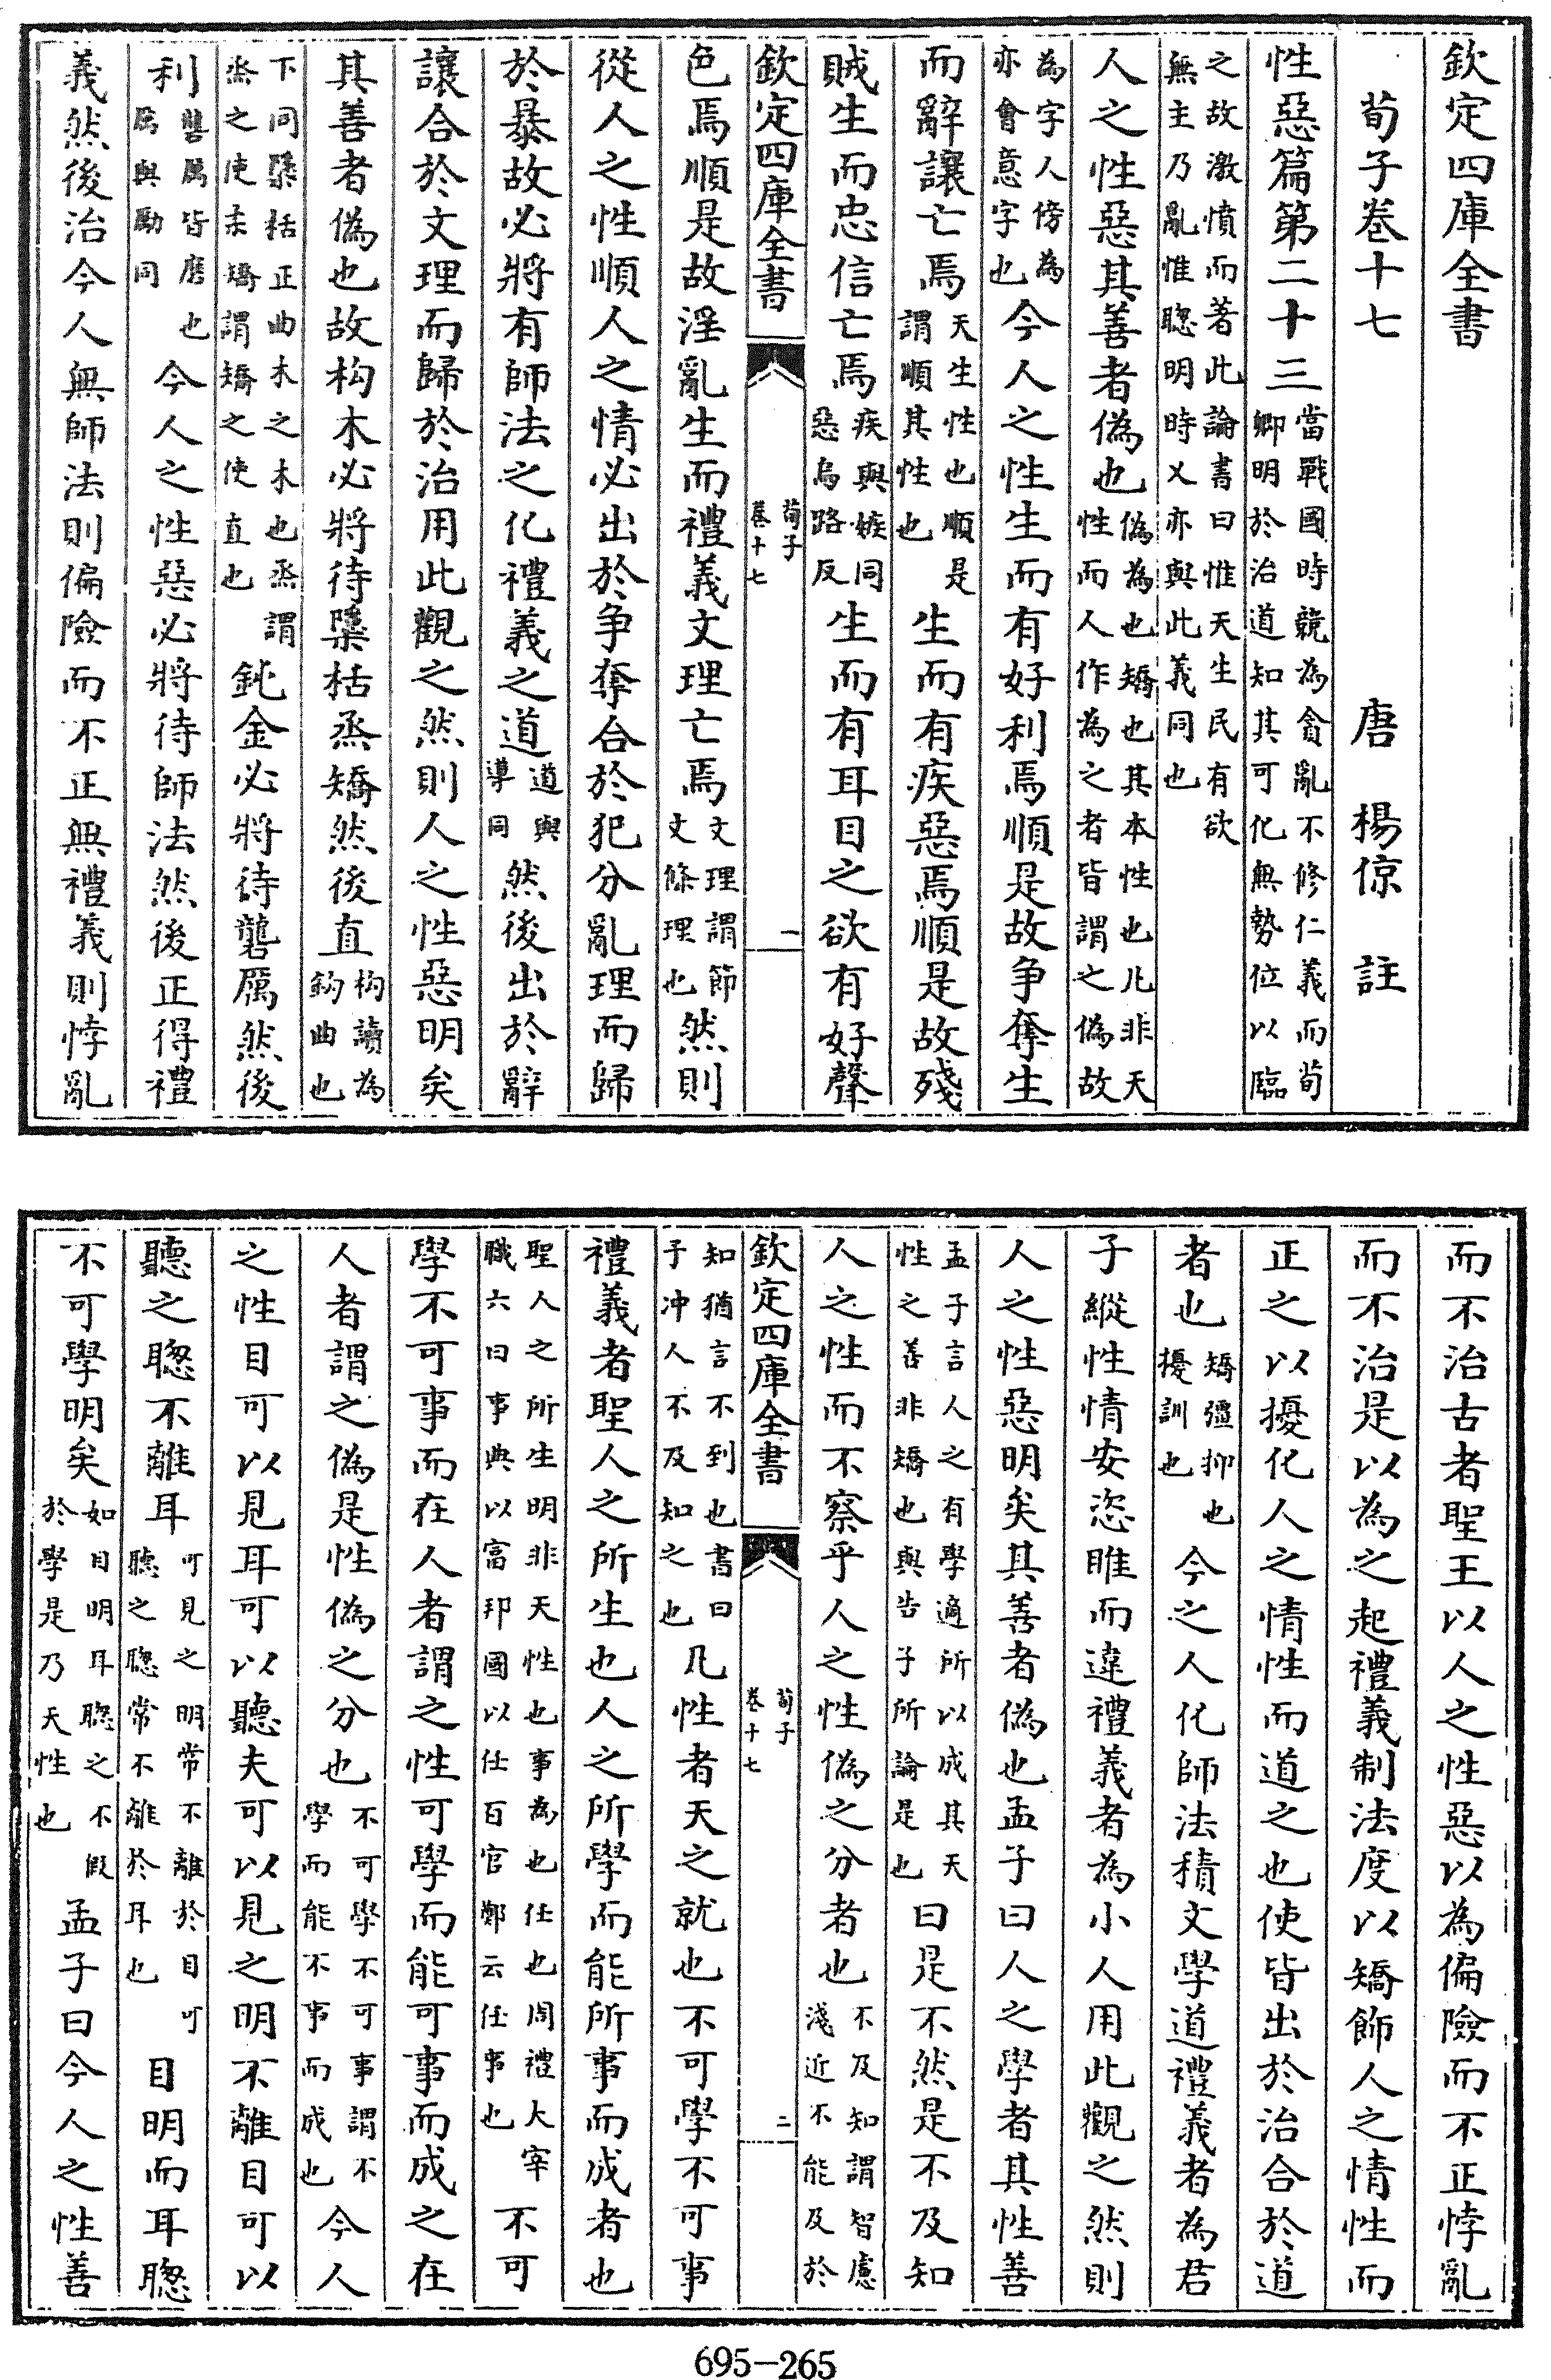 欽定四庫全書
荀子卷十七 唐 楊倞 註
性惡篇第二十三當戰國時競為貪亂不修仁義而荀卿明於治道知其可化無勢位以臨
之故激憤而著此論書曰惟天生民有欲無主乃亂惟聰明時乂亦與此義同也
人之性惡其善者偽也偽為也矯也其本性也凡非天性而人作為之者皆謂之偽故
為字人傍為亦會意字也今人之性生而有好利焉順是故争奪生
而辭讓亡焉天生性也順是謂順其性也生而有疾惡焉順是故殘
賊生而忠信亡焉疾與嫉同惡烏路反生而有耳目之欲有好聲
欽定四庫全書 荀子卷十七 一
色焉順是故淫亂生而禮義文理亡焉文理謂節文條理也然則
從人之性順人之情必出於争奪合於犯分亂理而歸
於暴故必將有師法之化禮義之道道與導同然後出於辭
讓合於文理而歸於治用此觀之然則人之性惡明矣
其善者偽也故枸木必將待檃栝烝矯然後直枸讀為鈎曲也
下同檃栝正曲木之木也烝謂烝之使柔矯謂矯之使直也鈍金必將待礱厲然後
利礱厲皆磨也厲與勵同今人之性惡必將待師法然後正得禮
義然後治今人無師法則偏險而不正無禮義則悖亂
而不治古者聖王以人之性惡以為偏險而不正悖亂
而不治是以為之起禮義制法度以矯飾人之情性而
正之以擾化人之情性而道之也使皆出於治合於道
者也矯彊抑也擾訓也今之人化師法積文學道禮義者為君
子縱性情安恣睢而違禮義者為小人用此觀之然則
人之性惡明矣其善者偽也孟子曰人之學者其性善
孟子言人之有學適所以成其天性之善非矯也與告子所論是也曰是不然是不及知
人之性而不察乎人之性偽之分者也不及知謂智慮淺近不能及於
欽定四庫全書 荀子卷十七 二
知猶言不到也書曰予冲人不及知之也凡性者天之就也不可學不可事
禮義者聖人之所生也人之所學而能所事而成者也
聖人之所生明非天性也事為也任也周禮大宰職六曰事典以富邦國以任百官鄭云任事也不可
學不可事而在人者謂之性可學而能可事而成之在
人者謂之偽是性偽之分也不可學不可事謂不學而能不事而成也今人
之性目可以見耳可以聽夫可以見之明不離目可以
聽之聰不離耳可見之明常不離於目可聽之聰常不離於耳也目明而耳聰
不可學明矣如目明耳聰之不假於學是乃天性也孟子曰今人之性善
695-265